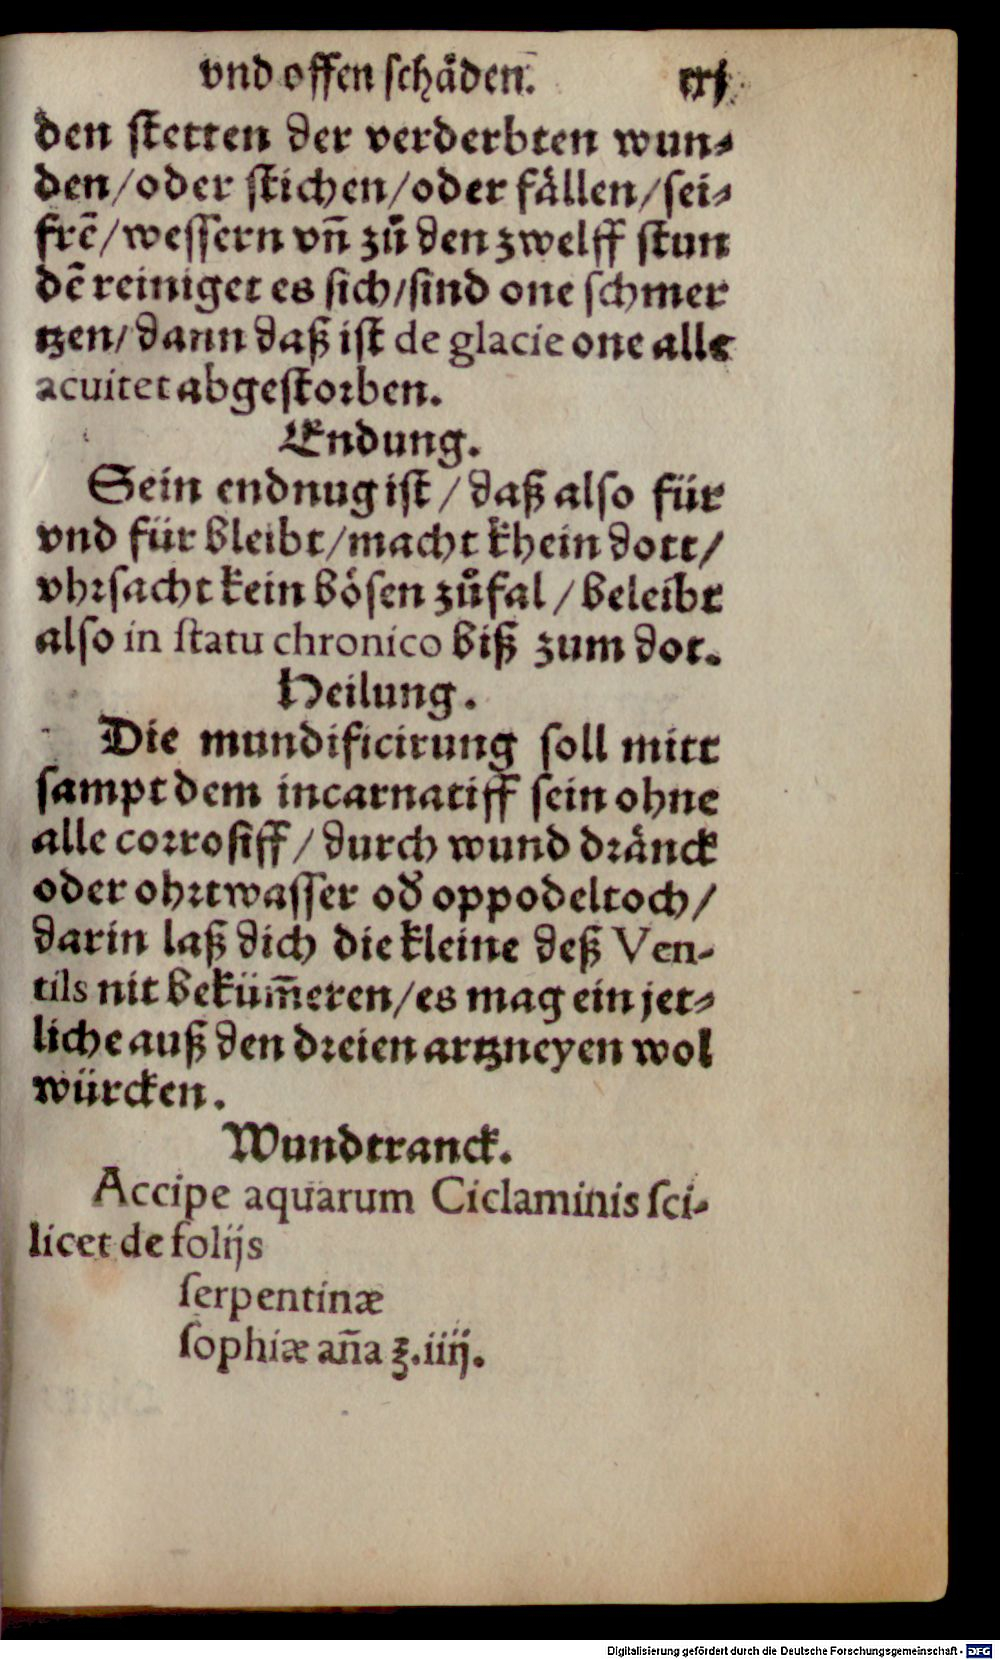 vnd offen schåden. xxj
den stetten der verderbten wun-
den/oder stichen/oder fållen/sei-
frē/wessern vñ zů den zwelff stun
dē reiniget es sich/sind one schmer
tzen/dann daß ist de glacie one alle
acuitet abgestorben.
Endung.
Sein endnug ist/daß also für
vnd für bleibt/macht khein dott/
vhrsacht kein bösen zůfal/beleibt
also in statu chronico biß zum dot.
Heilung.
Die mundificirung soll mitt
sampt dem incarnatiff sein ohne
alle corrosiff/durch wund drånck
oder ohrtwasser od̄ oppodeltoch/
darin laß dich die kleine deß Ven-
tils nit bekům̄eren/es mag ein jet-
liche auß den dreien artzneyen wol
würcken.
Wundtranck.
Accipe aquarum Ciclaminis sci-
licet de folijs
serpentinæ
sophiæ añа ʒ.iiij.
Digitalisierung gefördert durch die Deutsche Forschungsgemeinschaft - DFG